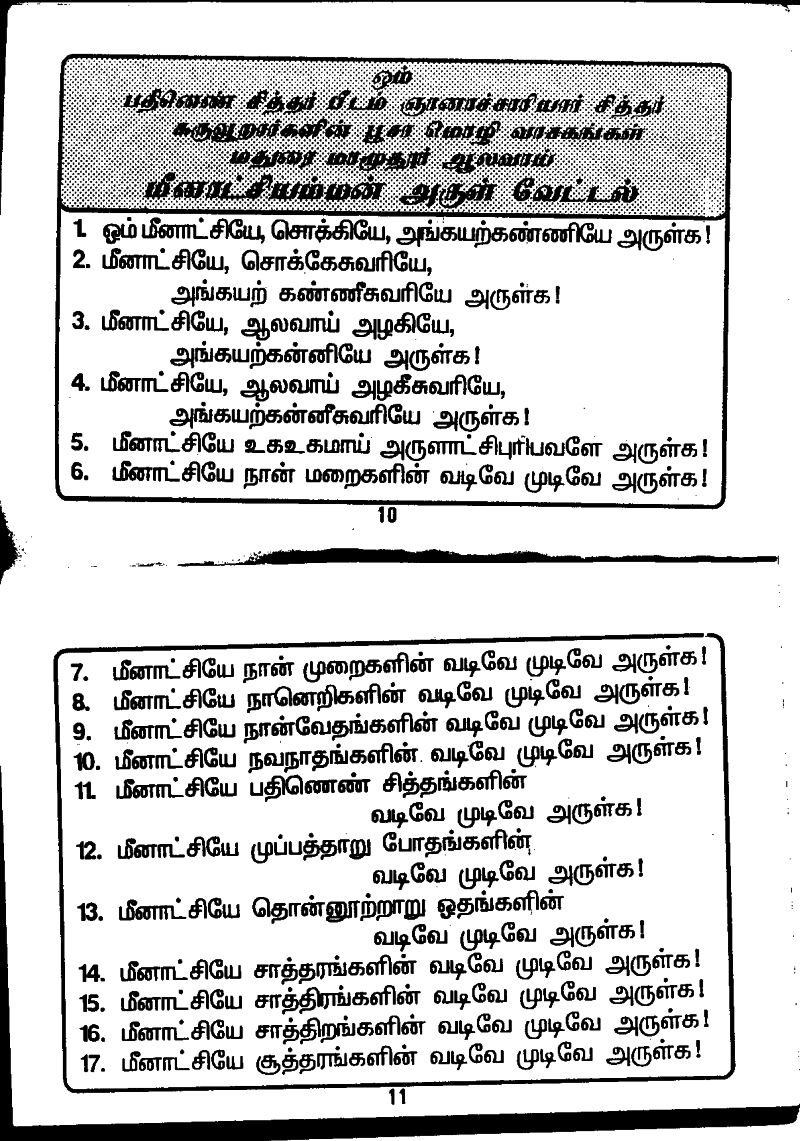 ஓம்
பதினெண் சித்தர் பீடம் ஞானாச்சாரியார் சித்தர்
கருவூறார்களின் பூசா மொழி வாசகங்கள்
மதுரை மாமூதூர் ஆலவாய்
மீனாட்சியம்மன் அருள் வேட்டல்
1. ஓம் மீனாட்சியே, சொக்கியே, அங்கயற்கண்ணியே அருள்க!
2. மீனாட்சியே, சொக்கேசுவரியே,
அங்கயற் கண்ணீசுவரியே அருள்க!
3. மீனாட்சியே, ஆலவாய் அழகியே,
அங்கயற்கன்னியே அருள்க!
4. மீனாட்சியே, ஆலவாய் அழகீசுவரியே,
அங்கயற்கன்னீசுவரியே அருள்க!
5. மீனாட்சியே உகஉகமாய் அருளாட்சிபுரிபவளே அருள்க!
6. மீனாட்சியே நான் மறைகளின் வடிவே முடிவே அருள்க!
10
7. மீனாட்சியே நான் முறைகளின் வடிவே முடிவே அருள்க!
8. மீனாட்சியே நானெறிகளின் வடிவே முடிவே அருள்க!
9. மீனாட்சியே நான்வேதங்களின் வடிவே முடிவே அருள்க!
10. மீனாட்சியே நவநாதங்களின் வடிவே முடிவே அருள்க!
11. மீனாட்சியே பதிணெண் சித்தங்களின்
வடிவே முடிவே அருள்க!
12. மீனாட்சியே முப்பத்தாறு போதங்களின்
வடிவே முடிவே அருள்க!
13. மீனாட்சியே தொன்னூற்றாறு ஓதங்களின்
வடிவே முடிவே அருள்க!
14. மீனாட்சியே சாத்தரங்களின் வடிவே முடிவே அருள்க!
15. மீனாட்சியே சாத்திரங்களின் வடிவே முடிவே அருள்க!
16. மீனாட்சியே சாத்திறங்களின் வடிவே முடிவே அருள்க!
17. மீனாட்சியே சூத்தரங்களின் வடிவே முடிவே அருள்க!
11